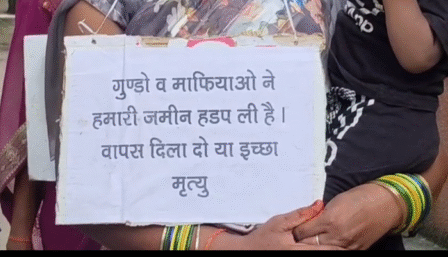 गुण्डो व माफियाओ ने
हमारी जमीन हडप ली है।
वापस दिला दो या इच्छा
मृत्यु